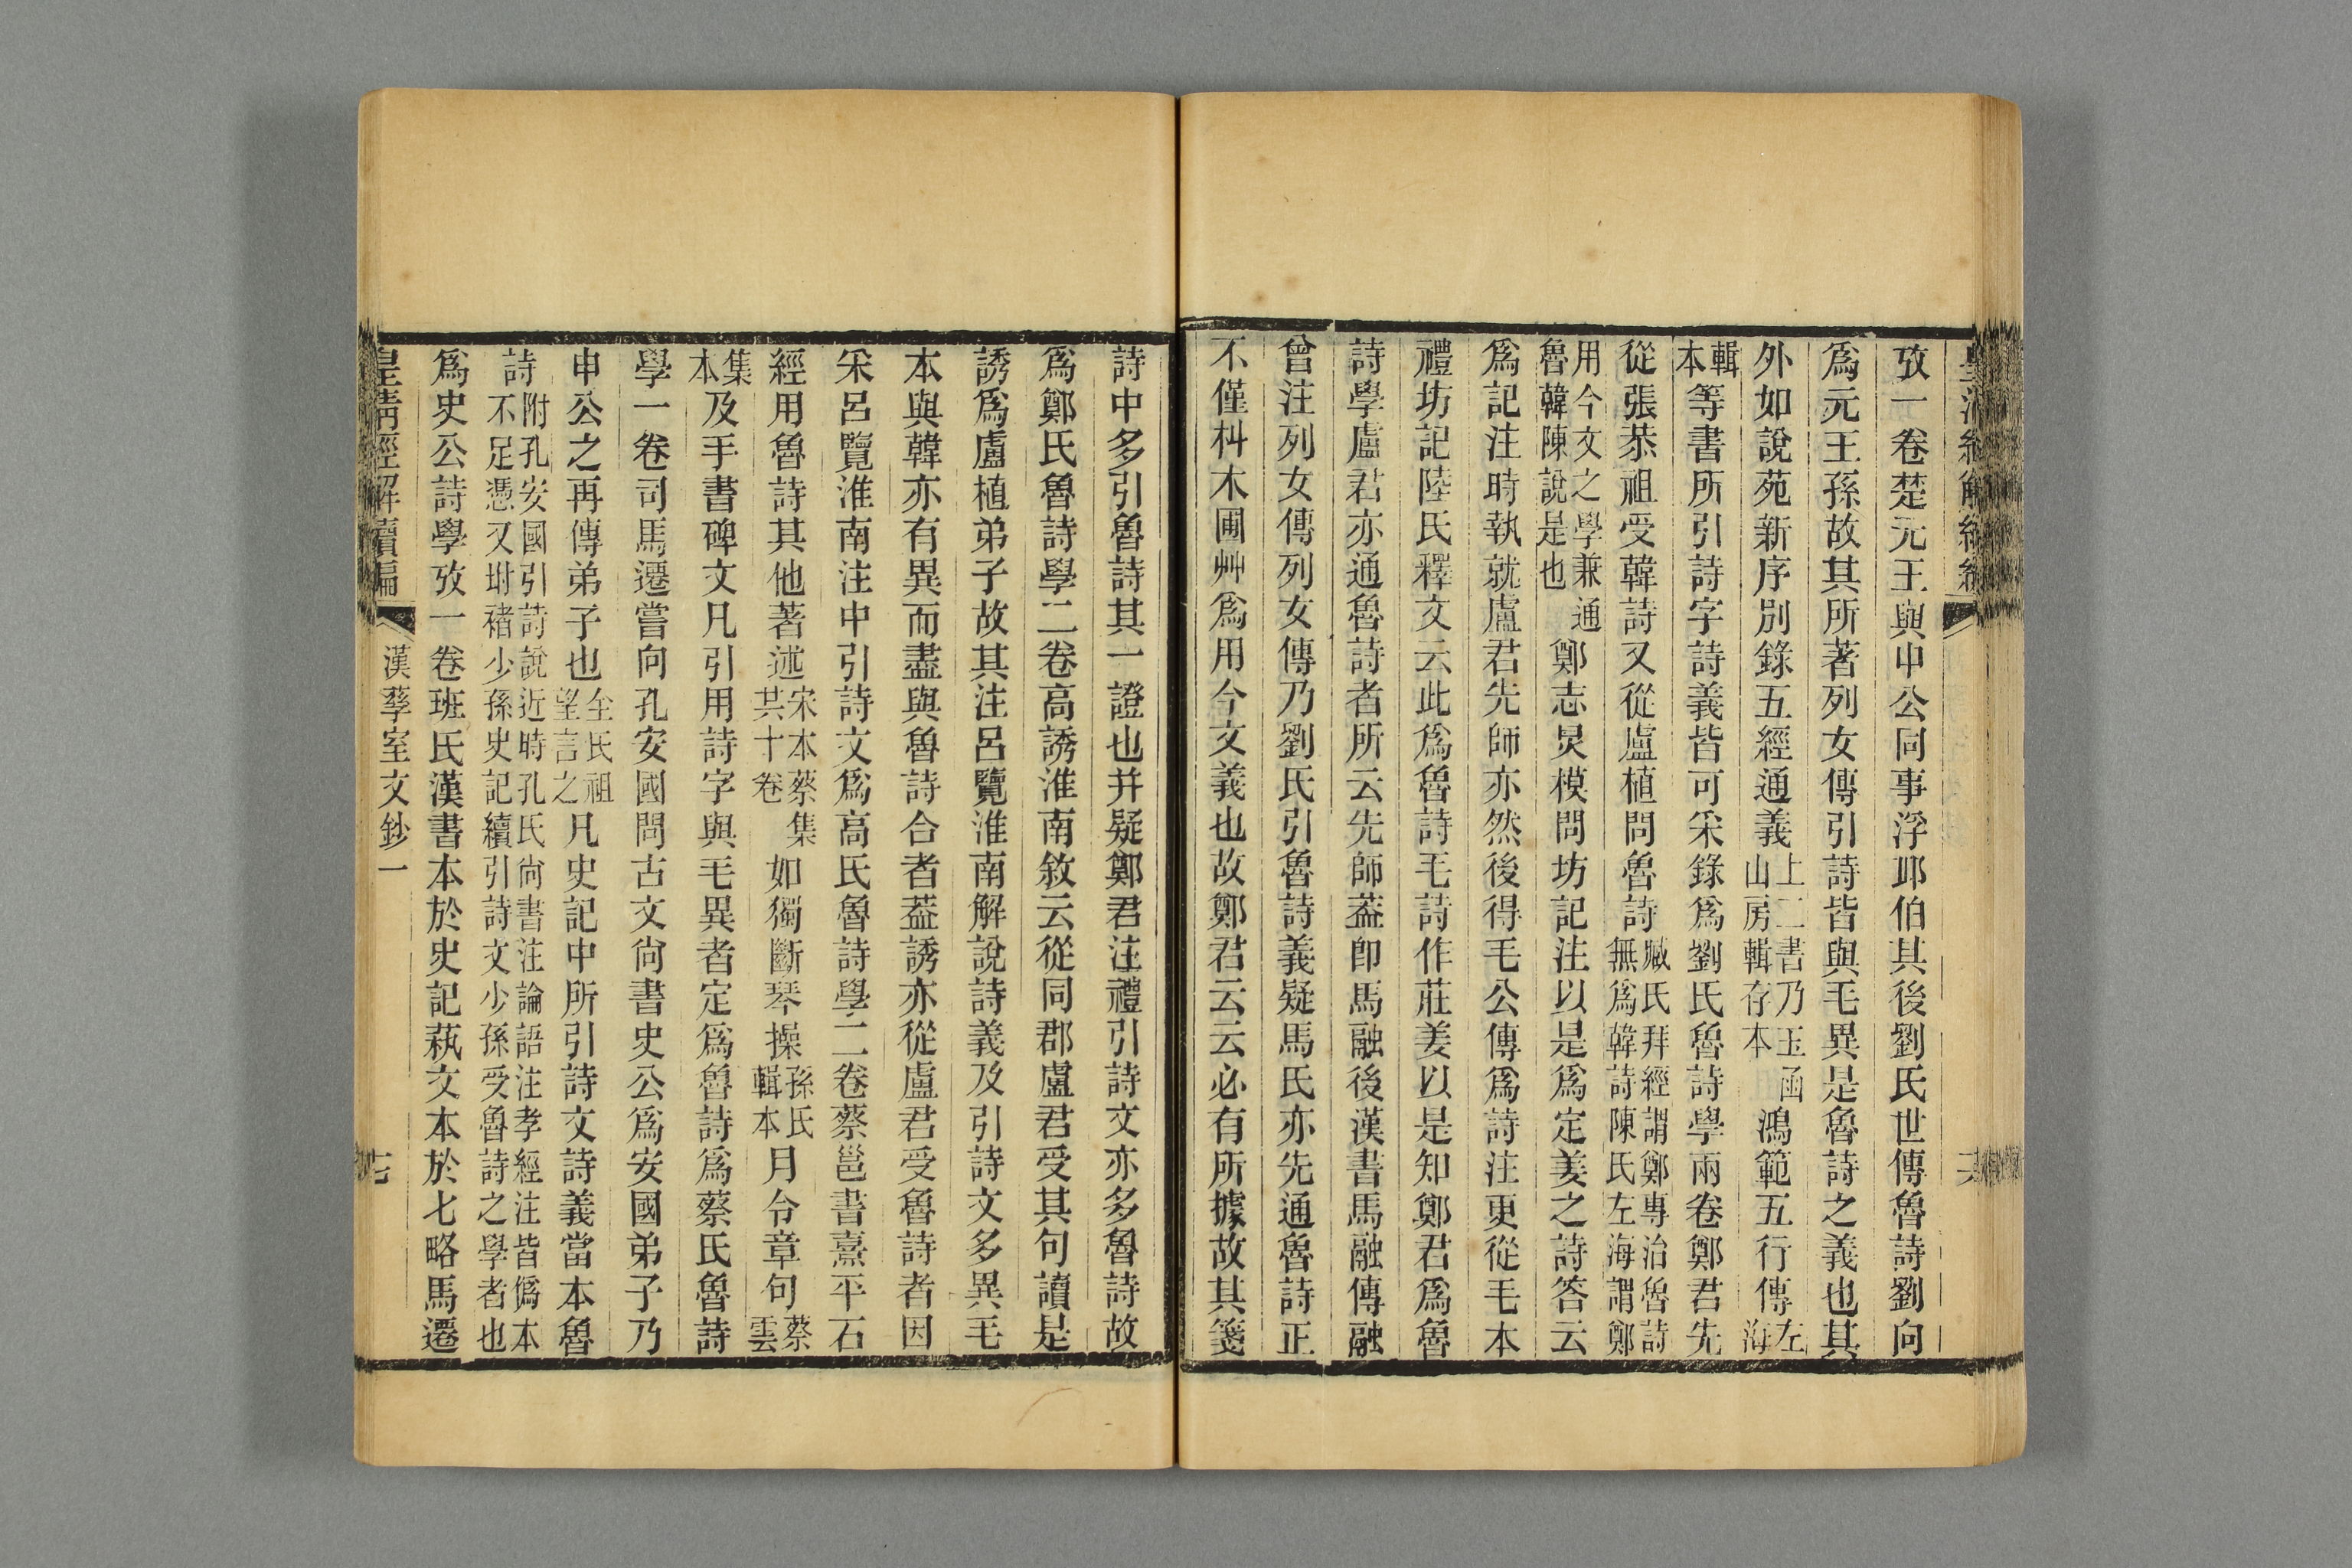 皇清經解續編
攷一卷楚元王與申公同事浮邱伯其後劉氏世傳魯詩劉向
爲元王孫故其所著列女傳引詩皆與毛異是魯詩之義也其
外如說苑新序別錄五經通義上二書乃玉函山房輯存本鴻範五行傳左海
輯本等書所引詩字詩義皆可采錄爲劉氏魯詩學兩卷鄭君先
從張恭祖受韓詩又從盧植問魯詩臧氏拜經謂鄭專治魯詩無爲韓詩陳氏左海謂鄭
用今文之學兼通魯韓陳說是也鄭志炅模問坊記注以是爲定姜之詩答云
爲記注時執就盧君先師亦然後得毛公傳爲詩注更從毛本
禮坊記陸氏釋文云此爲魯詩毛詩作莊姜以是知鄭君爲魯
詩學盧君亦通魯詩者所云先師葢卽馬融後漢書馬融傳融
曾注列女傳列女傳乃劉氏引魯詩義疑馬氏亦先通魯詩正
不僅枓木圃艸爲用今文義也故鄭君云云必有所據故其箋
詩中多引魯詩其一證也并疑鄭君注禮引詩文亦多魯詩故
爲鄭氏魯詩學二卷高誘淮南敘云從同郡盧君受其句讀是
誘爲盧植弟子故其注呂覽淮南解說詩義及引詩文多異毛
本與韓亦有異而盡與魯詩合者葢誘亦從盧君受魯詩者因
采呂覽淮南注中引詩文爲高氏魯詩學二卷蔡邕書熹平石
經用魯詩其他著述宋本蔡集共十卷如獨斷琴操孫氏輯本月令章句蔡雲
集本及手書碑文凡引用詩字與毛異者定爲魯詩爲蔡氏魯詩
學一卷司馬遷嘗向孔安國問古文尙書史公爲安國弟子乃
申公之再傳弟子也全氏祖望言之凡史記中所引詩文詩義當本魯
詩附孔安國引詩說近時孔氏尙書注論語注孝經注皆僞本不足憑又坿褚少孫史記續引詩文少孫受魯詩之學者也
爲史公詩學攷一卷班氏漢書本於史記蓺文本於七略馬遷
皇清經解續編
漢孳室文鈔一
十七